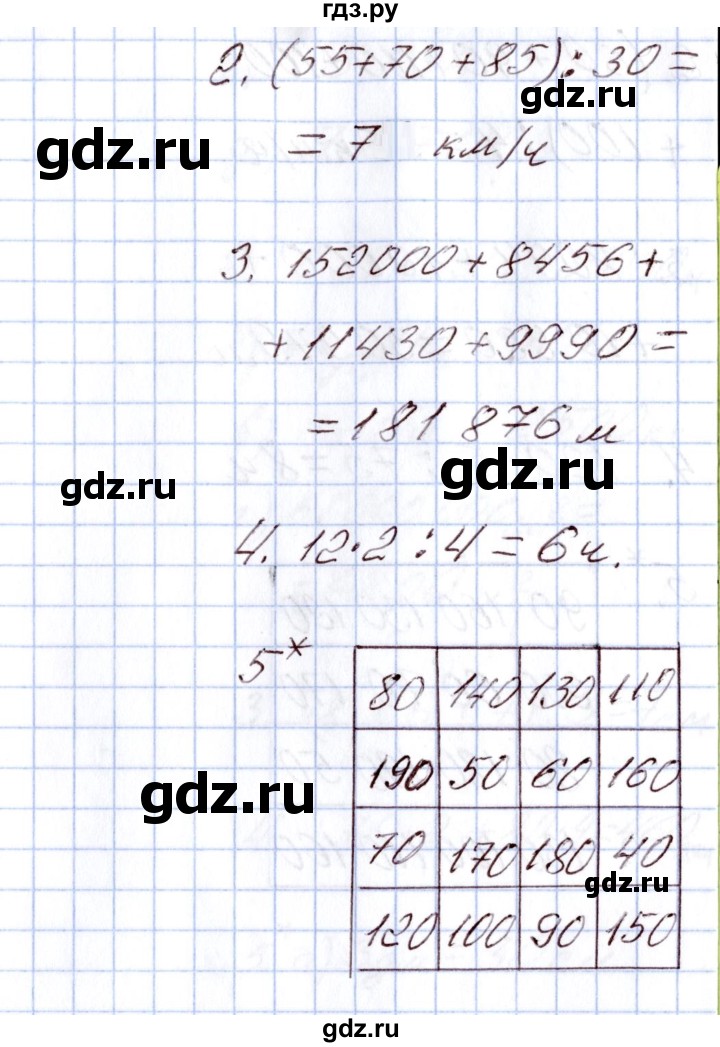 гдз.ру
2. (55+70+85):30=
gdz.ru
gdz.ru
=7 км/ч
3. 152000+8456+
+11430+9990=
=181 876 м
gdz.ru
gdz.ru
4. 12·2:4=6ч.
5*
80 140 130 110
190 50 60 160
gdz.ru
70 170 180 40
gdz.ru
120 100 90 150
gdz.ru